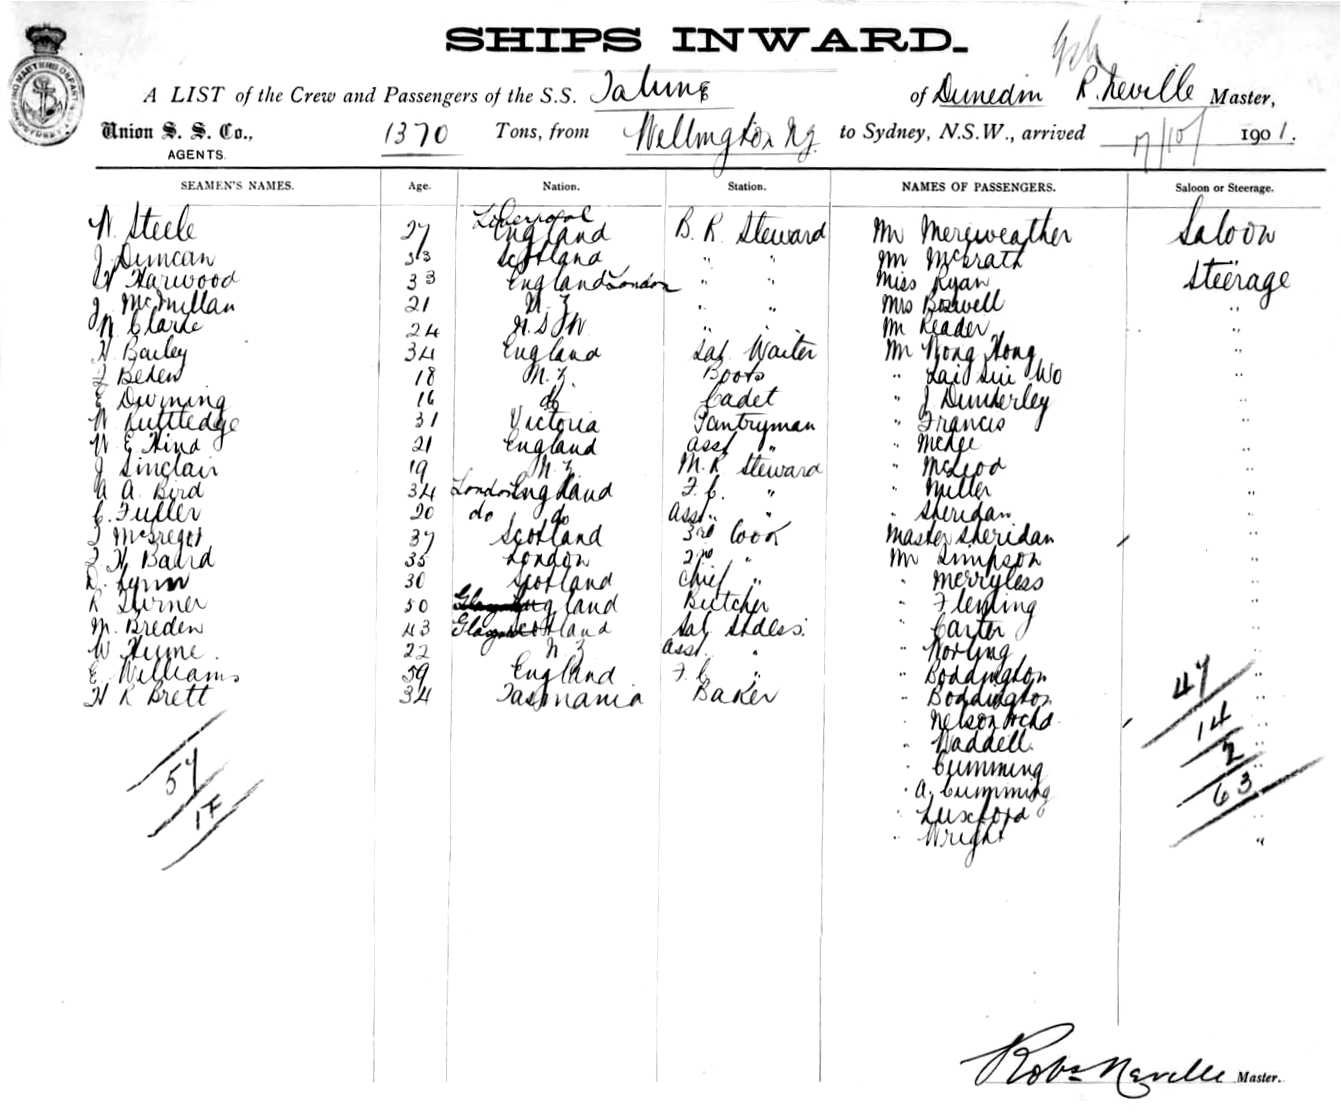 SHIPS INWARD.
A LIST of the Crew and Passengers of the S.S. Talune of Dunedin R. Neville Master,
Union S. S. Co., 1370 Tons, from Wellington NZ to Sydney, N.S.W., arrived 17/10/ 1901.
AGENTS.
SEAMEN'S NAMES. Age. Nation. Station. NAMES OF PASSENGERS. Saloon or Steerage.
Liverpool
W. Steele 27 England B. R. Steward Mr Mereweather Saloon
J Duncan 33 Scotland " " Mr McGrath
H Harwood 33 England London " " Miss Ryan Steerage
J. McMillan 21 N Z " " Mrs Boswell "
W Clarke 24 N. S W " " Mr Reader "
H Bailey 34 England Sal. Waiter Mr Wong Hong "
Beden 18 N. Z. Boots " Lai Sui Wo "
E Downing 16 do Cadet " J Dunderley "
W Ruttledge 31 Victoria Pantryman " Francis "
W E Hind 21 England asst " " McGee "
J Sinclair 19 N. Z. M. R Steward " McLeod "
A A Bird 34 London England F. C. " " Miller "
C. Fuller 20 do do asst " " " Sheridan "
J McGregor 37 Scotland 3rd Cook Master Sheridan "
J H Baird 35 London 2nd " Mr Simpson "
D. Lynn 30 Scotland Chief " " Merryless "
R Turner 50 England Butcher " Fleming "
M. Breden 43 Glasgow Scotland Sal Stdess. " Carter "
W Hume. 22 N Z asst. " " Norling "
E Williams 59 England F. C " " Boddington "
H R Brett 34 Tasmania Baker " Boddington "
" Nelson "
" Waddell "
" Cumming "
" A. Cumming
" Luxford "
" Wright "
47
14
2
63
57
17
Robt Neville Master.